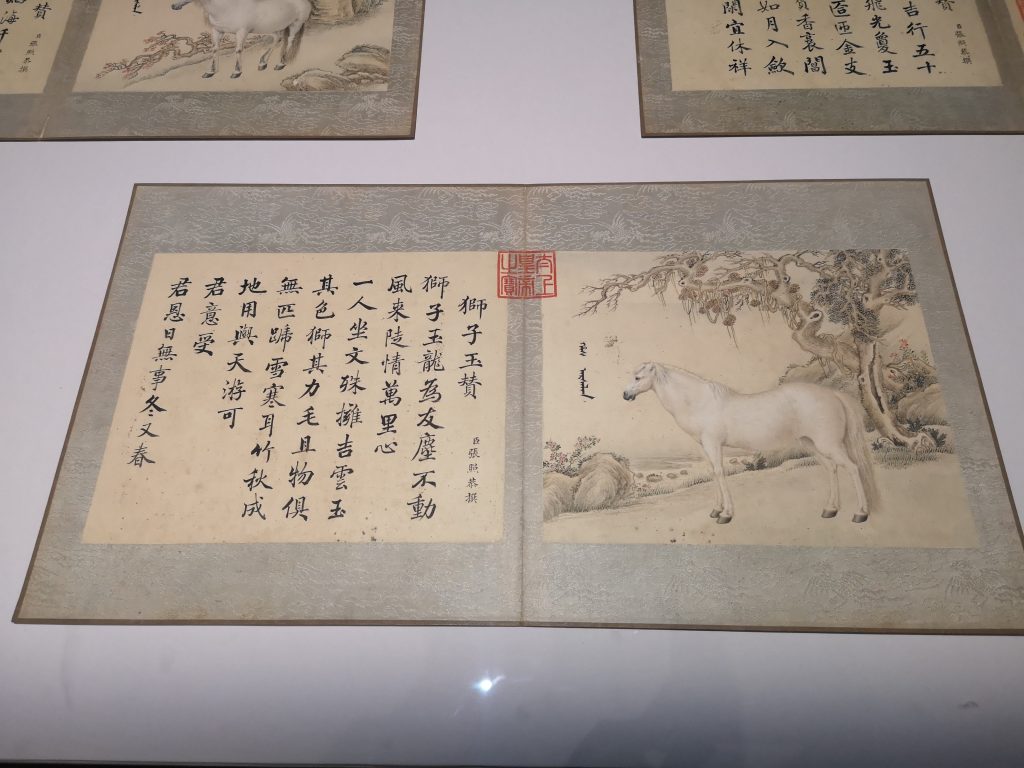 賛
臣張照恭撰
吉行五十
飛光夐玉
匝金支
香裛閶
如月入歛
閑宜休祥
賛
臣張照恭撰
太上皇帝之寶
獅子玉賛
臣張照恭撰
獅子玉龍為友塵不動
風來陡情萬里心
一人坐文殊擁吉雲玉
其色獅其力毛且物俱
無匹蹄雪寒耳竹秋成
地用與天游可
君意受
君恩日無事冬又春